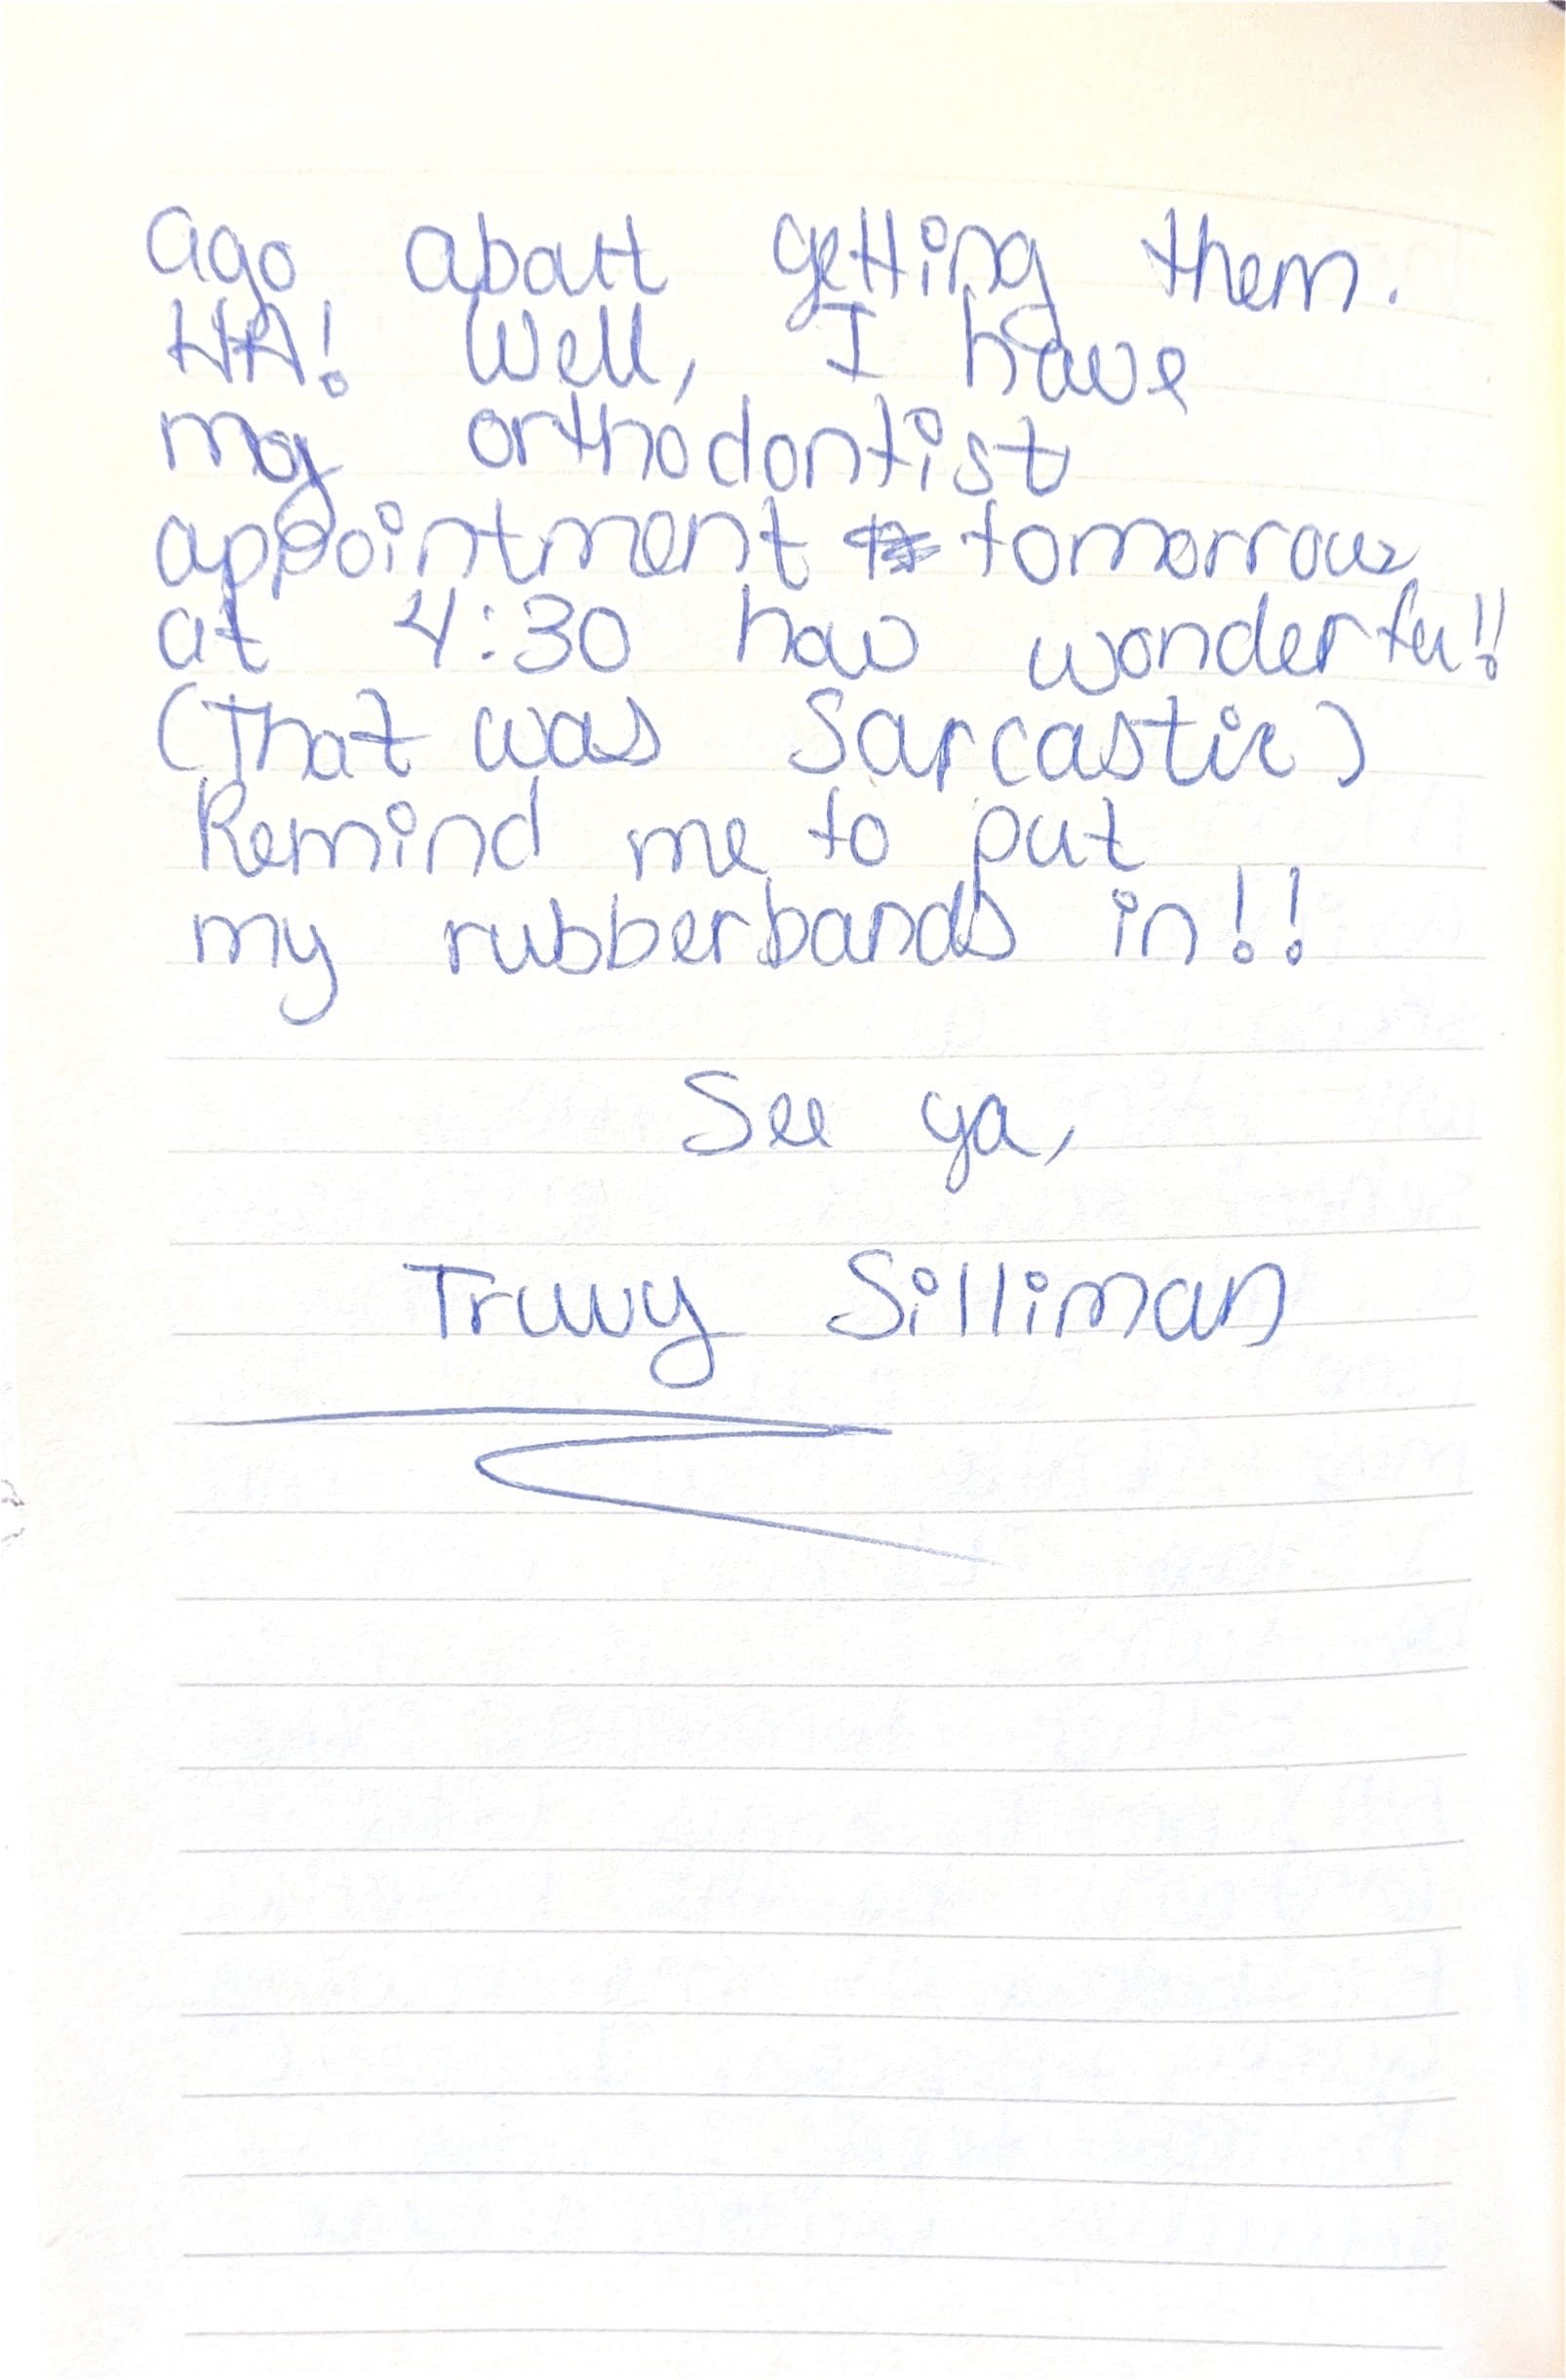 ago about getting them.
HA! Well, I have
my orthodontist
appointment tomorrow
at 4:30 how wonderful!!
(That was Sarcastic)
Remind me to put
my rubberbands in!!
See ya,
Truvy Silliman